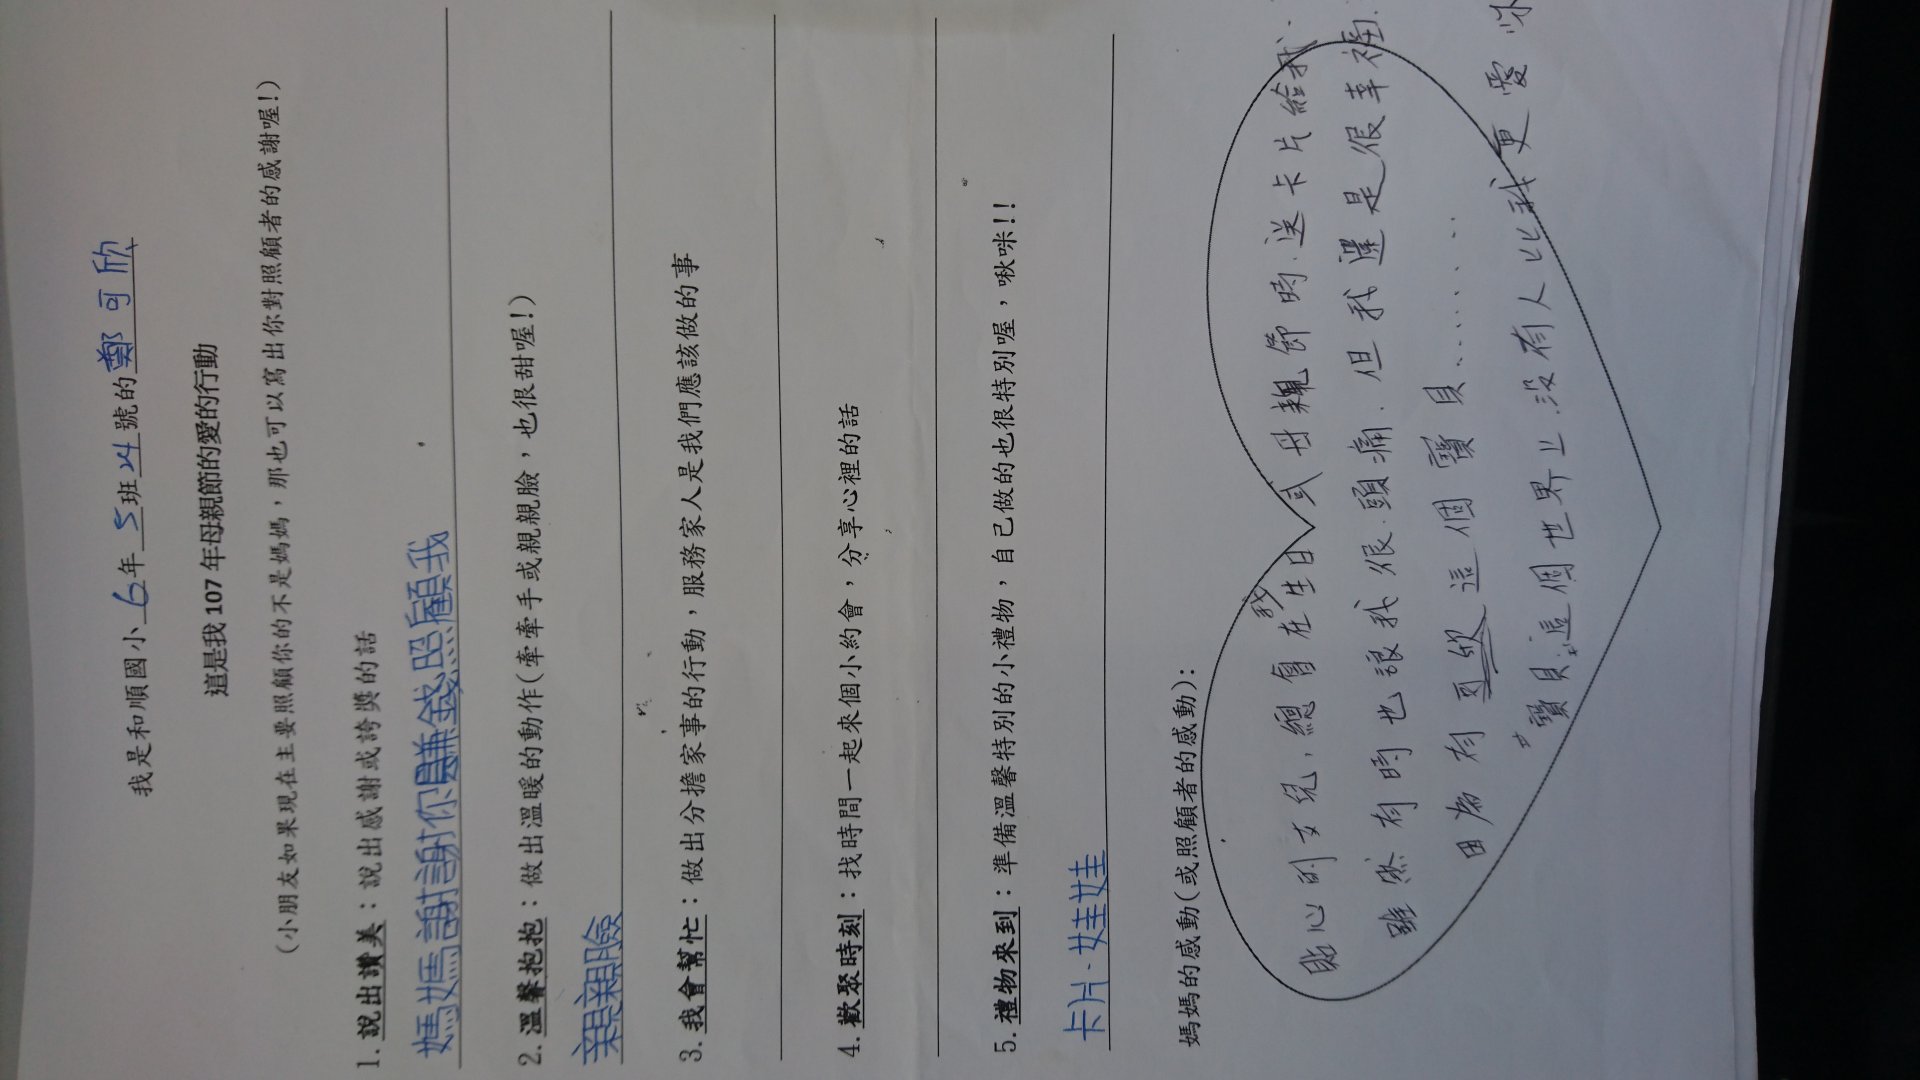 我是和順國小6年5班24號的鄭可欣
這是我107年母親節的愛的行動
(小朋友如果現在主要照顧你的不是媽媽，那也可以寫出你對照顧者的感謝喔!)
1.說出讚美：說出感謝或誇獎的話
媽媽謝謝你賺錢照顧我
2.溫馨抱抱：做出溫暖的動作(牽牽手或親親臉，也很甜喔!)
親親臉
3.我會幫忙：做出分擔家事的行動，服務家人是我們應該做的事
4.歡聚時刻：找時間一起來個小約會，分享心裡的話
5.禮物來到：準備溫馨特別的小禮物，自己做的也很特別喔，啾咪!!
卡片.娃娃
媽媽的感動(或照顧者的感動):
貼心的女兒,總會在我生日或母親節時.送卡片給我.
雖然有時也讓我很頭痛.但我還是很幸福.
因為有可欣這個寶貝........
寶貝.這個世界上沒有人比我更愛你